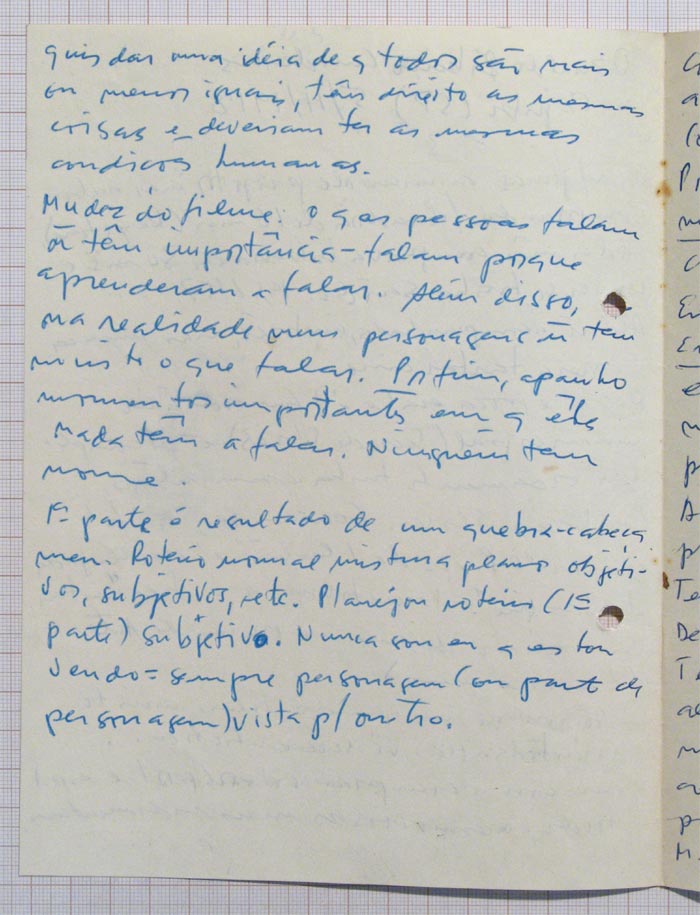 quis dar uma idéia de q todos são mais
ou menos iguais, têm direito as mesmas
coisas e deveriam ter as mesmas
condições humanas.
Mudez do filme: o q as pessoas falam
ñ têm importância - falam porque
aprenderam a falar. Além disso,
na realidade meus personagens ñ têm
muito o que falar. Por fim, apanho
momentos importantes em q êles
nada têm a falar. Ninguém tem
nome.
1ª parte é resultado de um quebra-cabeça
meu. Roteiro normal mistura planos objeti-
vos, subjetivos, etc. Planejou roteiro (1ª
parte) subjetivo. Nunca sou eu q estou
vendo = sempre personagem (ou part de
personagem) vista p/ outro.